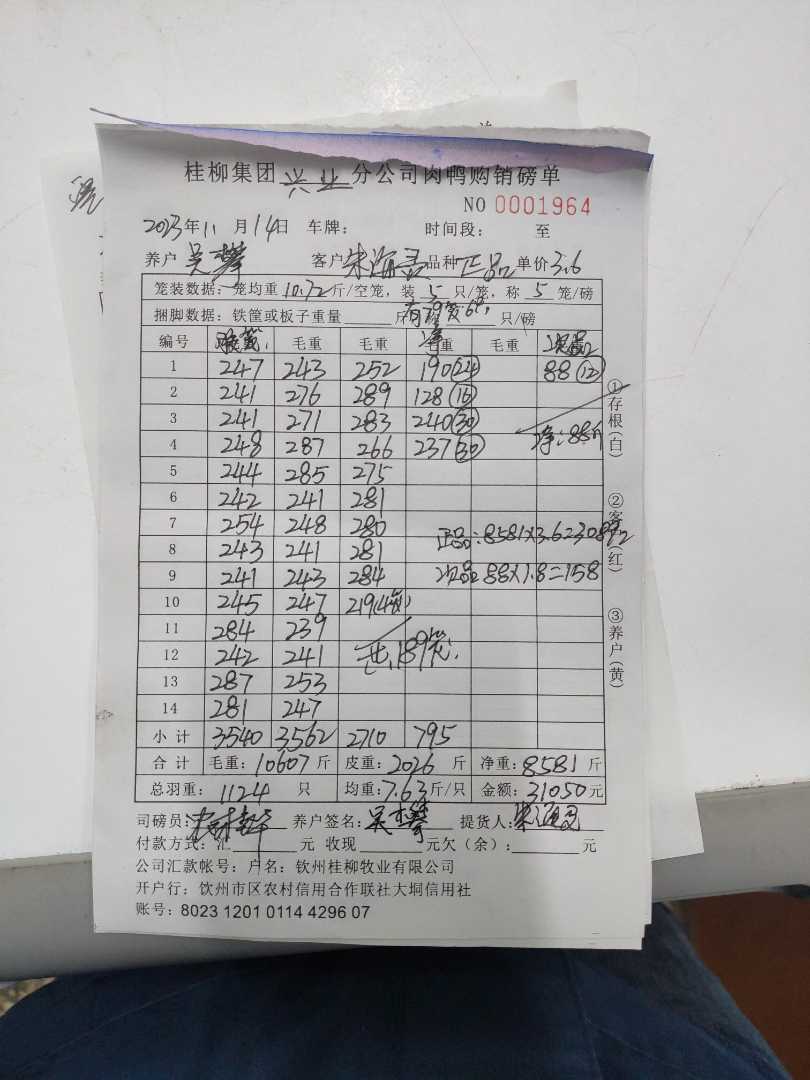 桂柳集团 兴业 分公司肉鸭购销磅单
NO 0001964
2023年11月14日 车牌： 时间段： 至
养户 吴攀 客户 品种 正品 单价 3.6
笼装数据：笼均重 10.72 斤/空笼，装 5 只/笼，称 5 笼/磅
捆脚数据：铁筐或板子重量 斤 只/磅
编号 毛重 毛重 毛重 毛重
1 247 243 252 190(24) 88(12)
2 241 276 289 128(16)
3 241 271 283 240(30)
4 248 287 266 237(30) 净：88斤
5 244 285 275
6 242 241 281
7 254 248 280 正品：8581×3.6=30892
8 243 241 281
9 241 243 284 次品 88×1.8=158
10 245 247 219(4笼)
11 284 239
12 242 241 共189笼
13 287 253
14 281 247
小计 3540 3562 2710 795
合计 毛重：10607斤 皮重：2026 斤 净重：8581斤
总羽重： 1124 只 均重：7.63斤/只 金额：31050元
司磅员： 养户签名：吴攀 提货人：
付款方式：汇 元 收现 元欠（余）： 元
公司汇款帐号：户名：钦州桂柳牧业有限公司
开户行：钦州市区农村信用合作联社大垌信用社
账号：8023 1201 0114 4296 07
①存根(白)
②客户(红)
③养户(黄)